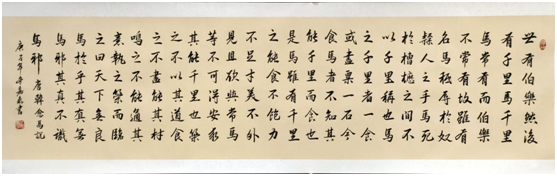 世有伯樂然後
有千里馬千里
馬常有而伯樂
不常有故雖有
名馬秖辱於奴
隸人之手馬死
於槽櫪之間不
以千里稱也馬
之千里者一食
或盡粟一石今
食馬者不知其
能千里而食也
是馬雖有千里
之能食不飽力
不足才美不外
見且欲與常馬
等不可得安求
其能千里也策
之不以其道食
之不盡能其材
鳴之不能通其
意執之策而臨
之曰天下無良
馬於乎其真無
馬邪其真不識
馬邪 唐韓愈馬說
年李嘉書